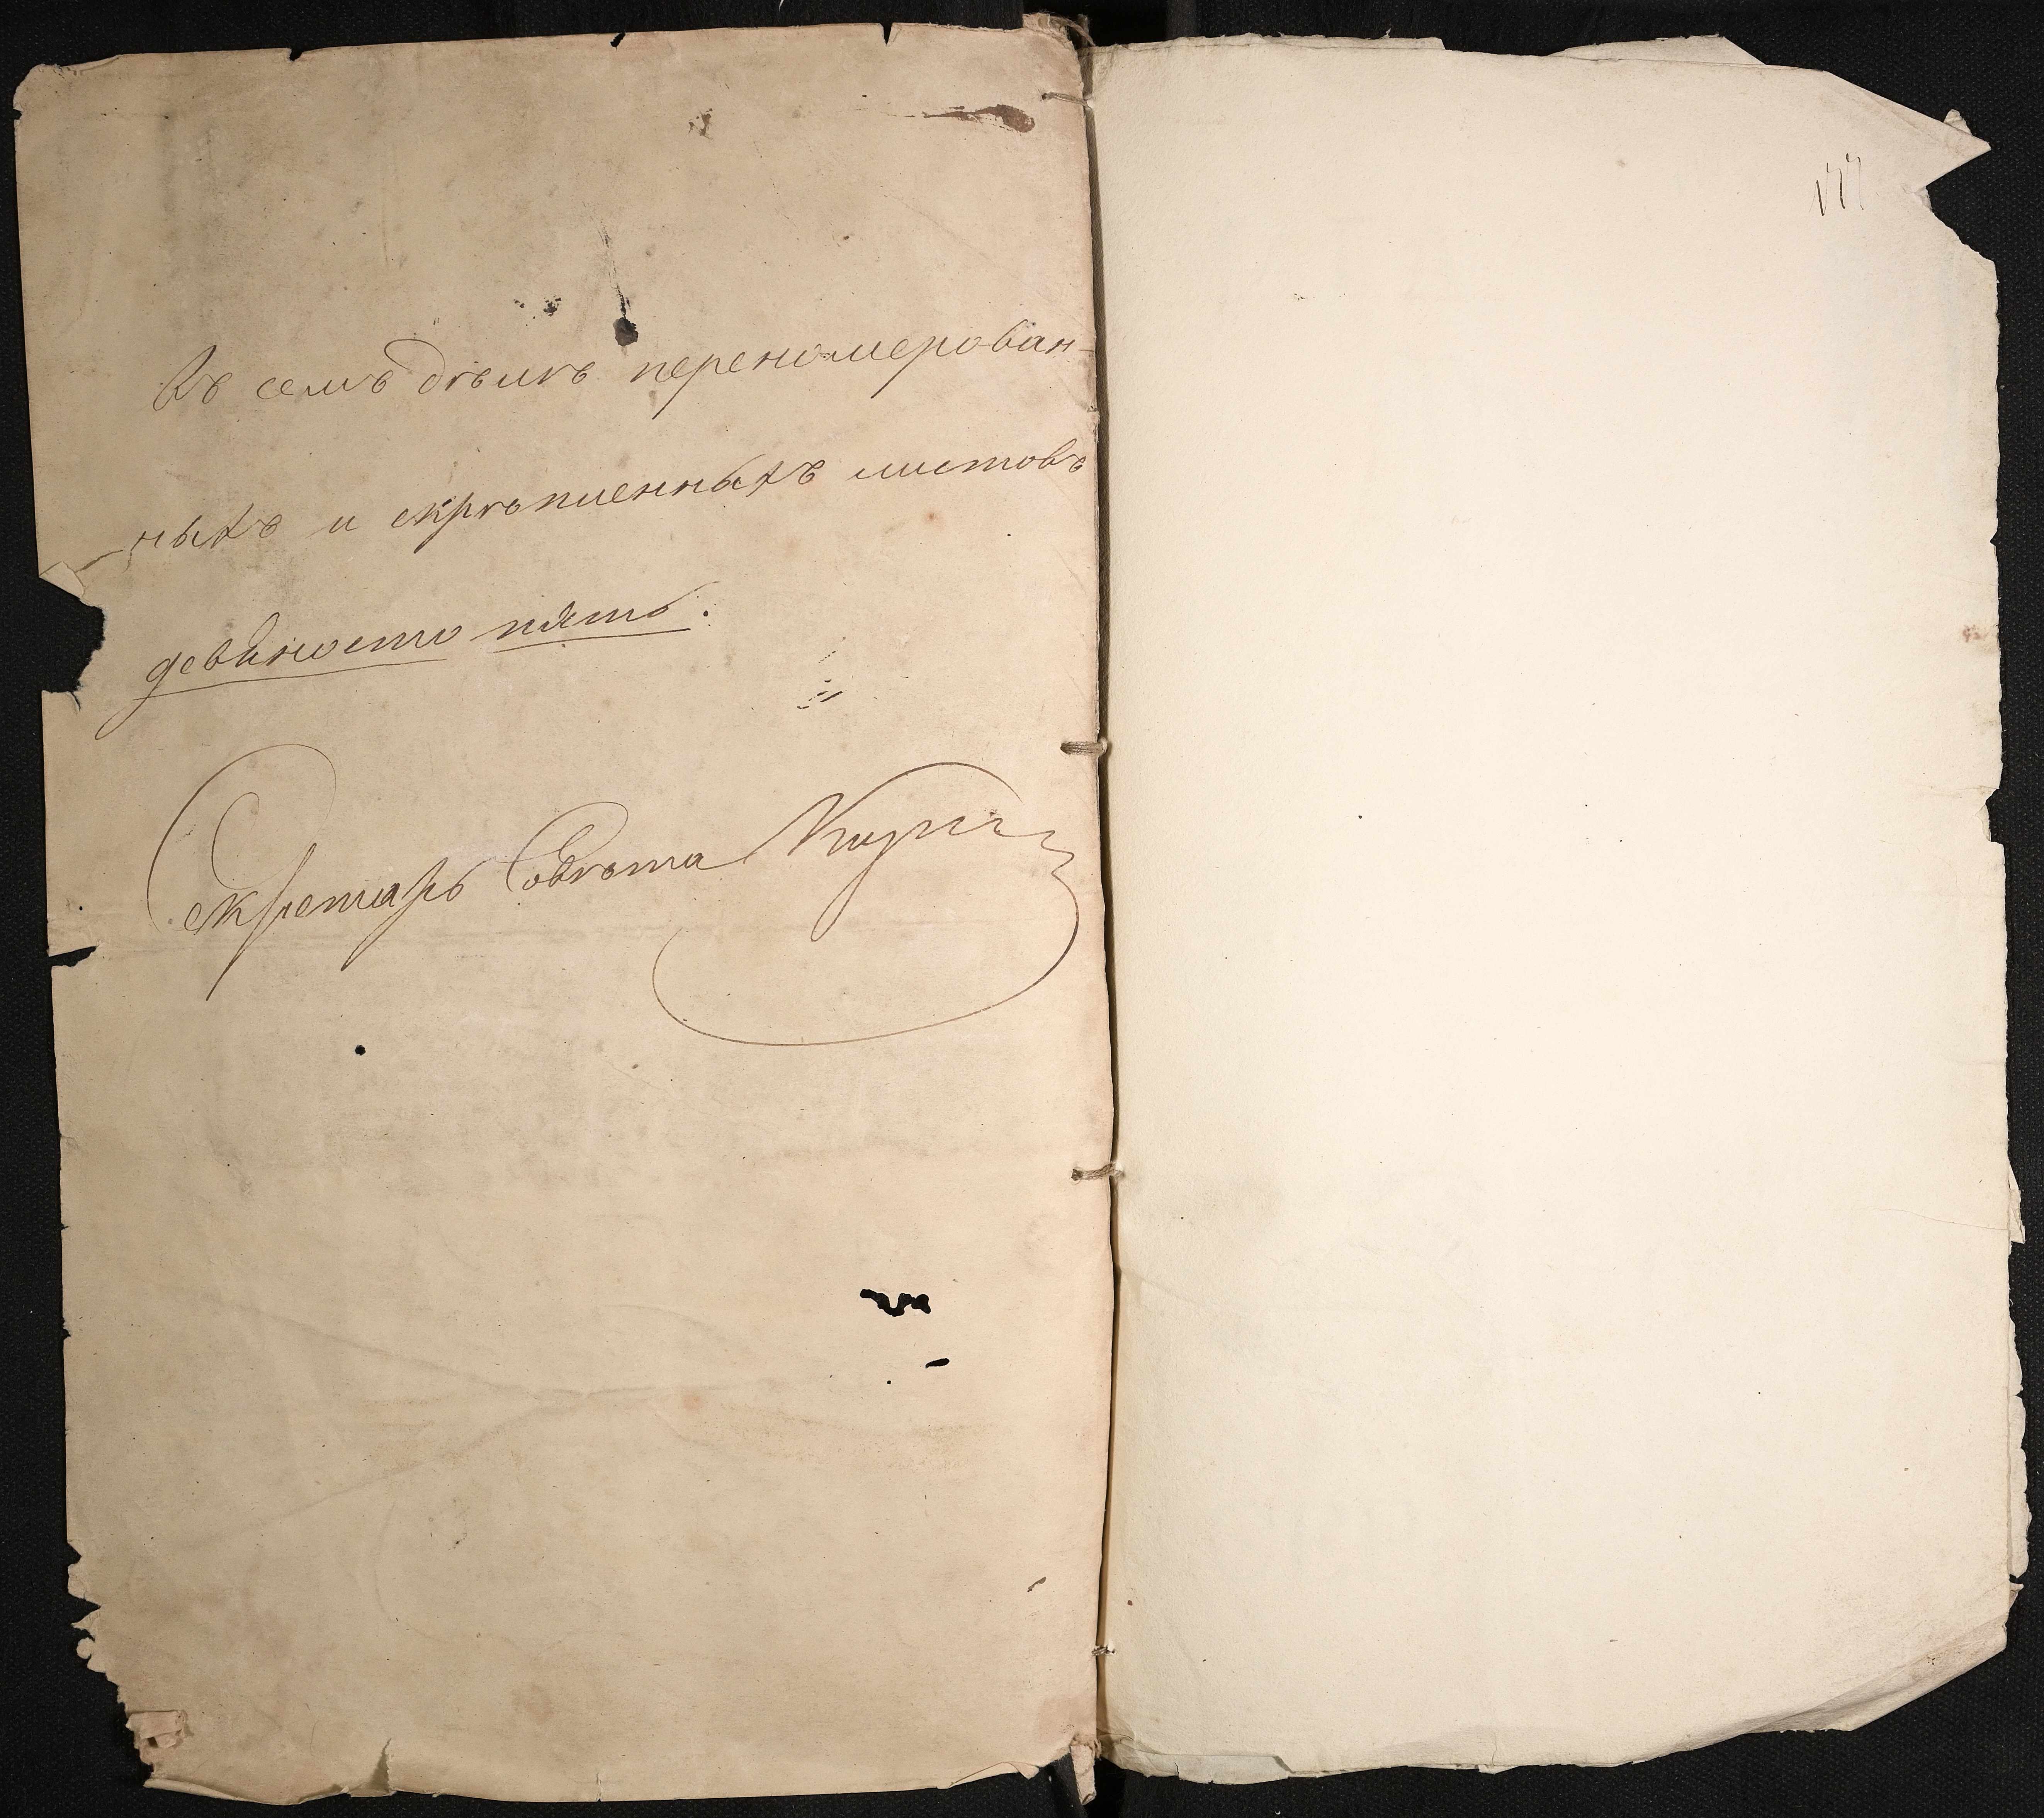 Въ семъ дѣлѣ переномерован-
ныхъ и скрѣпленныхъ листовъ
девяносто пять.
Секретарь Совѣта
177